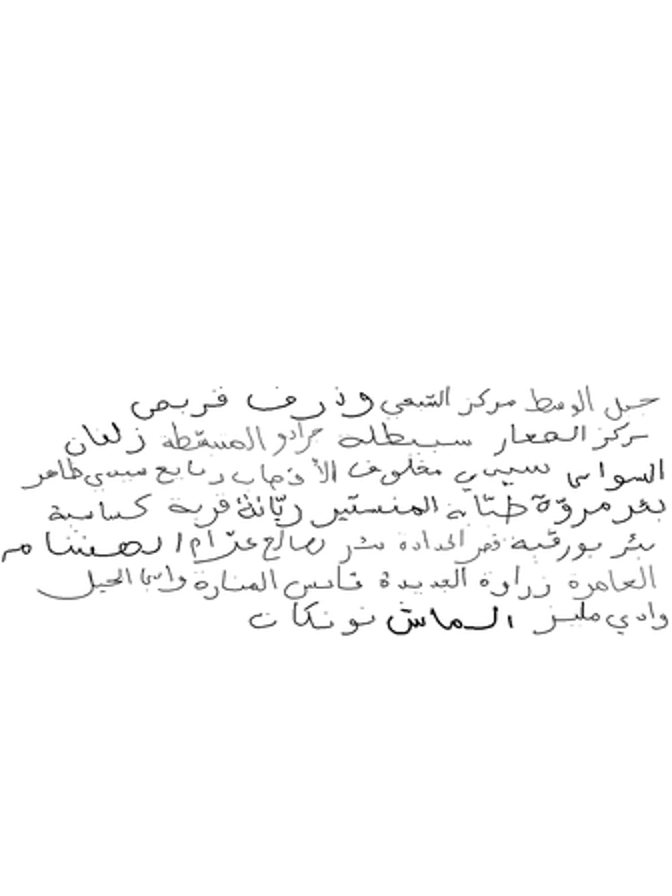 جبل الوسط مركز الشعبي وذرف قربص
مركز المعار سبيطلة جرادو المسقطة زلفان
السواسي سيدي مخلوف سيدي ظاهر
بئر مروة طبّانة المنستير ريّانة قرية كساسبة
بئر بورقبة قصر الحدادة بئر صالح عرّام
العامرة زراوة الجديدة قابس المنارة راس الجبل
وادي مليز الماش